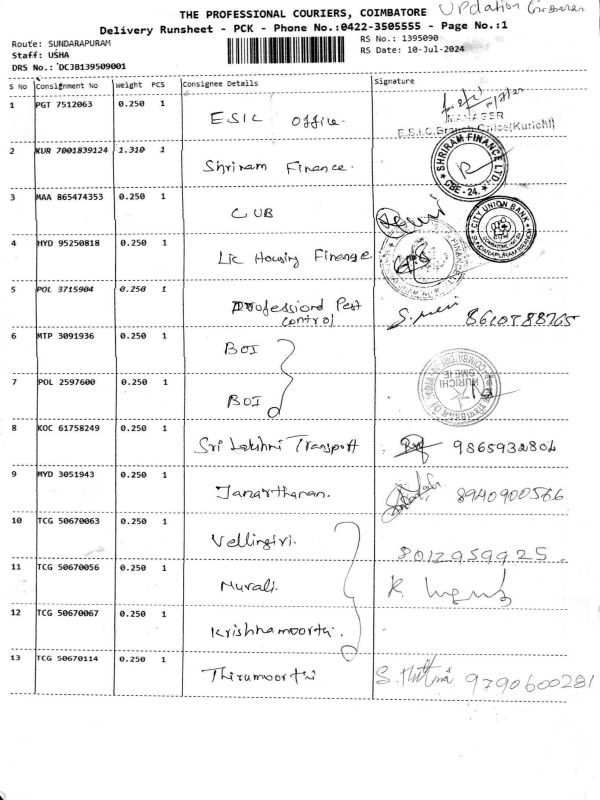 THE PROFESSIONAL COURIERS, COIMBATORE
Updation
Delivery Runsheet - PCK - Phone No.:0422-3505555 - Page No.:1
Route: SUNDARAPURAM
RS No.: 1395090
Staff: USHA
RS Date: 10-Jul-2024
DRS No.: DCJB139509001
S No Consignment No Weight PCS Consignee Details Signature
1 PGT 7512063 0.250 1 ESIC office.
MANAGER
E.S.I.C. Branch Office(Kurichi)
2 KUR 7001839124 1.310 1 Shriram Finance.
SHRIRAM FINANCE LTD.
CBE - 24.
3 MAA 865474353 0.250 1 CUB
CITY UNION BANK
SUNDARAPURAM BRANCH
4 HYD 95250818 0.250 1 Lic Housing Finange
5 POL 3715904 0.250 1 Professional Pest
control
6 MTP 3091936 0.250 1 BOI
KURICHI
SME IE
7 POL 2597600 0.250 1 BOI
8 KOC 61758249 0.250 1 Sri Lakshmi Transport 9865932804
9 MYD 3051943 0.250 1 Janarthanan. 8940900566
10 TCG 50670063 0.250 1 Vellingiri. 8012959925.
11 TCG 50670056 0.250 1 Murali. K.
12 TCG 50670067 0.250 1 Krishnamoorthi.
13 TCG 50670114 0.250 1 Thirumoorthi 9790600281